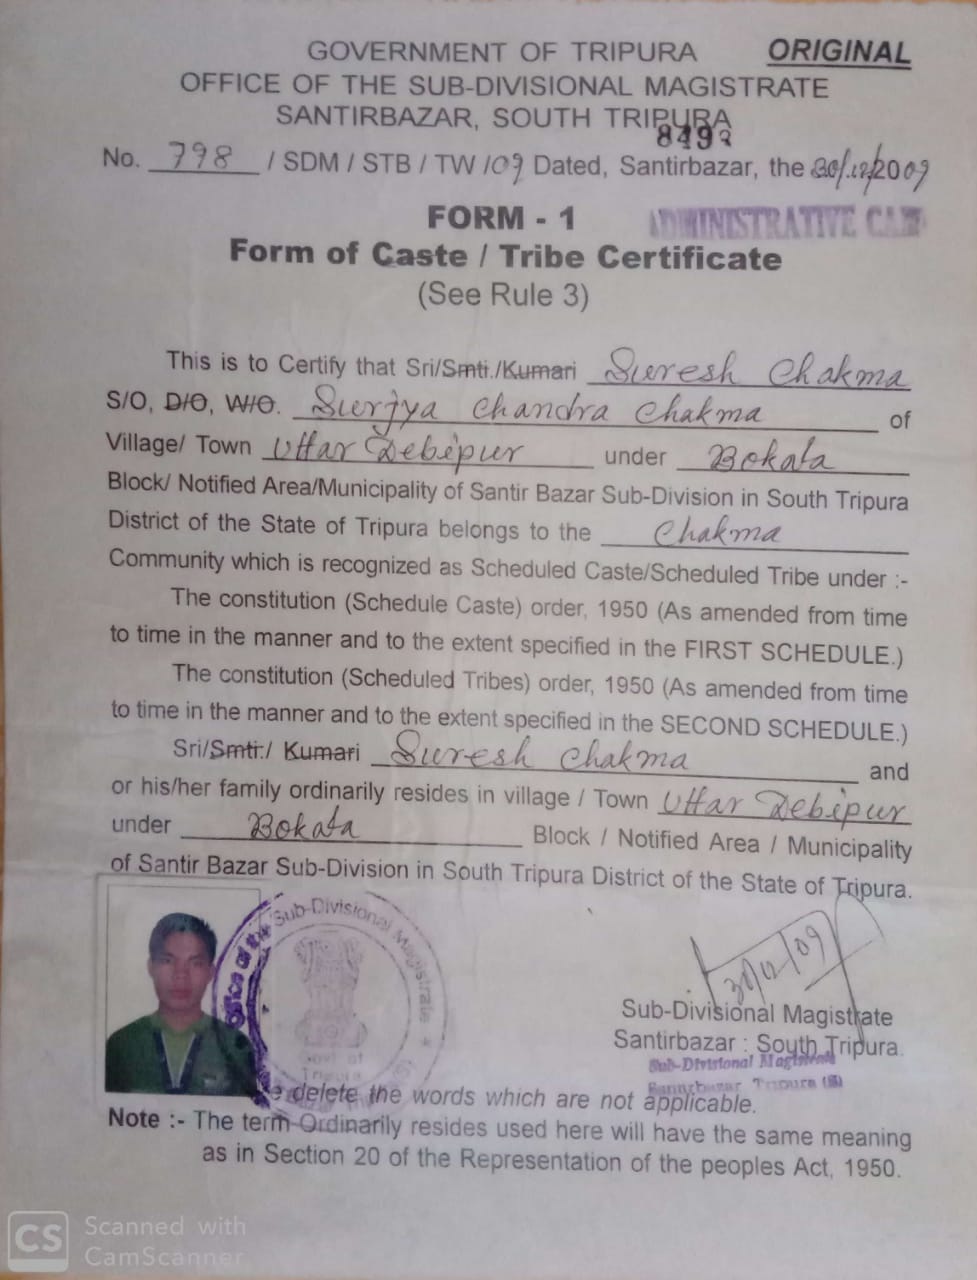 GOVERNMENT OF TRIPURA ORIGINAL
OFFICE OF THE SUB-DIVISIONAL MAGISTRATE
SANTIRBAZAR, SOUTH TRIPURA
No. 798 / SDM / STB / TW /09 Dated, Santirbazar, the 30/12/2009
ADMINISTRATIVE
FORM - 1
Form of Caste / Tribe Certificate
(See Rule 3)
This is to Certify that Sri/Smti./Kumari Suresh Chakma
S/O, D/O, W/O. Surjya Chandra Chakma of
Village/ Town Uttar Debipur under Bokafa
Block/ Notified Area/Municipality of Santir Bazar Sub-Division in South Tripura
District of the State of Tripura belongs to the Chakma
Community which is recognized as Scheduled Caste/Scheduled Tribe under :-
The constitution (Schedule Caste) order, 1950 (As amended from time
to time in the manner and to the extent specified in the FIRST SCHEDULE.)
The constitution (Scheduled Tribes) order, 1950 (As amended from time
to time in the manner and to the extent specified in the SECOND SCHEDULE.)
Sri/Smti./ Kumari Suresh Chakma and
or his/her family ordinarily resides in village / Town Uttar Debipur
under Bokafa Block / Notified Area / Municipality
of Santir Bazar Sub-Division in South Tripura District of the State of Tripura.
Office of the Sub-Divisional Magistrate
Govt of
Tripura
30/12/09
Sub-Divisional Magistrate
Santirbazar : South Tripura.
Sub-Divisional Magistrate
Santirbazar Tripura (S)
delete the words which are not applicable.
Note :- The term Ordinarily resides used here will have the same meaning
as in Section 20 of the Representation of the peoples Act, 1950.
CS Scanned with
CamScanner